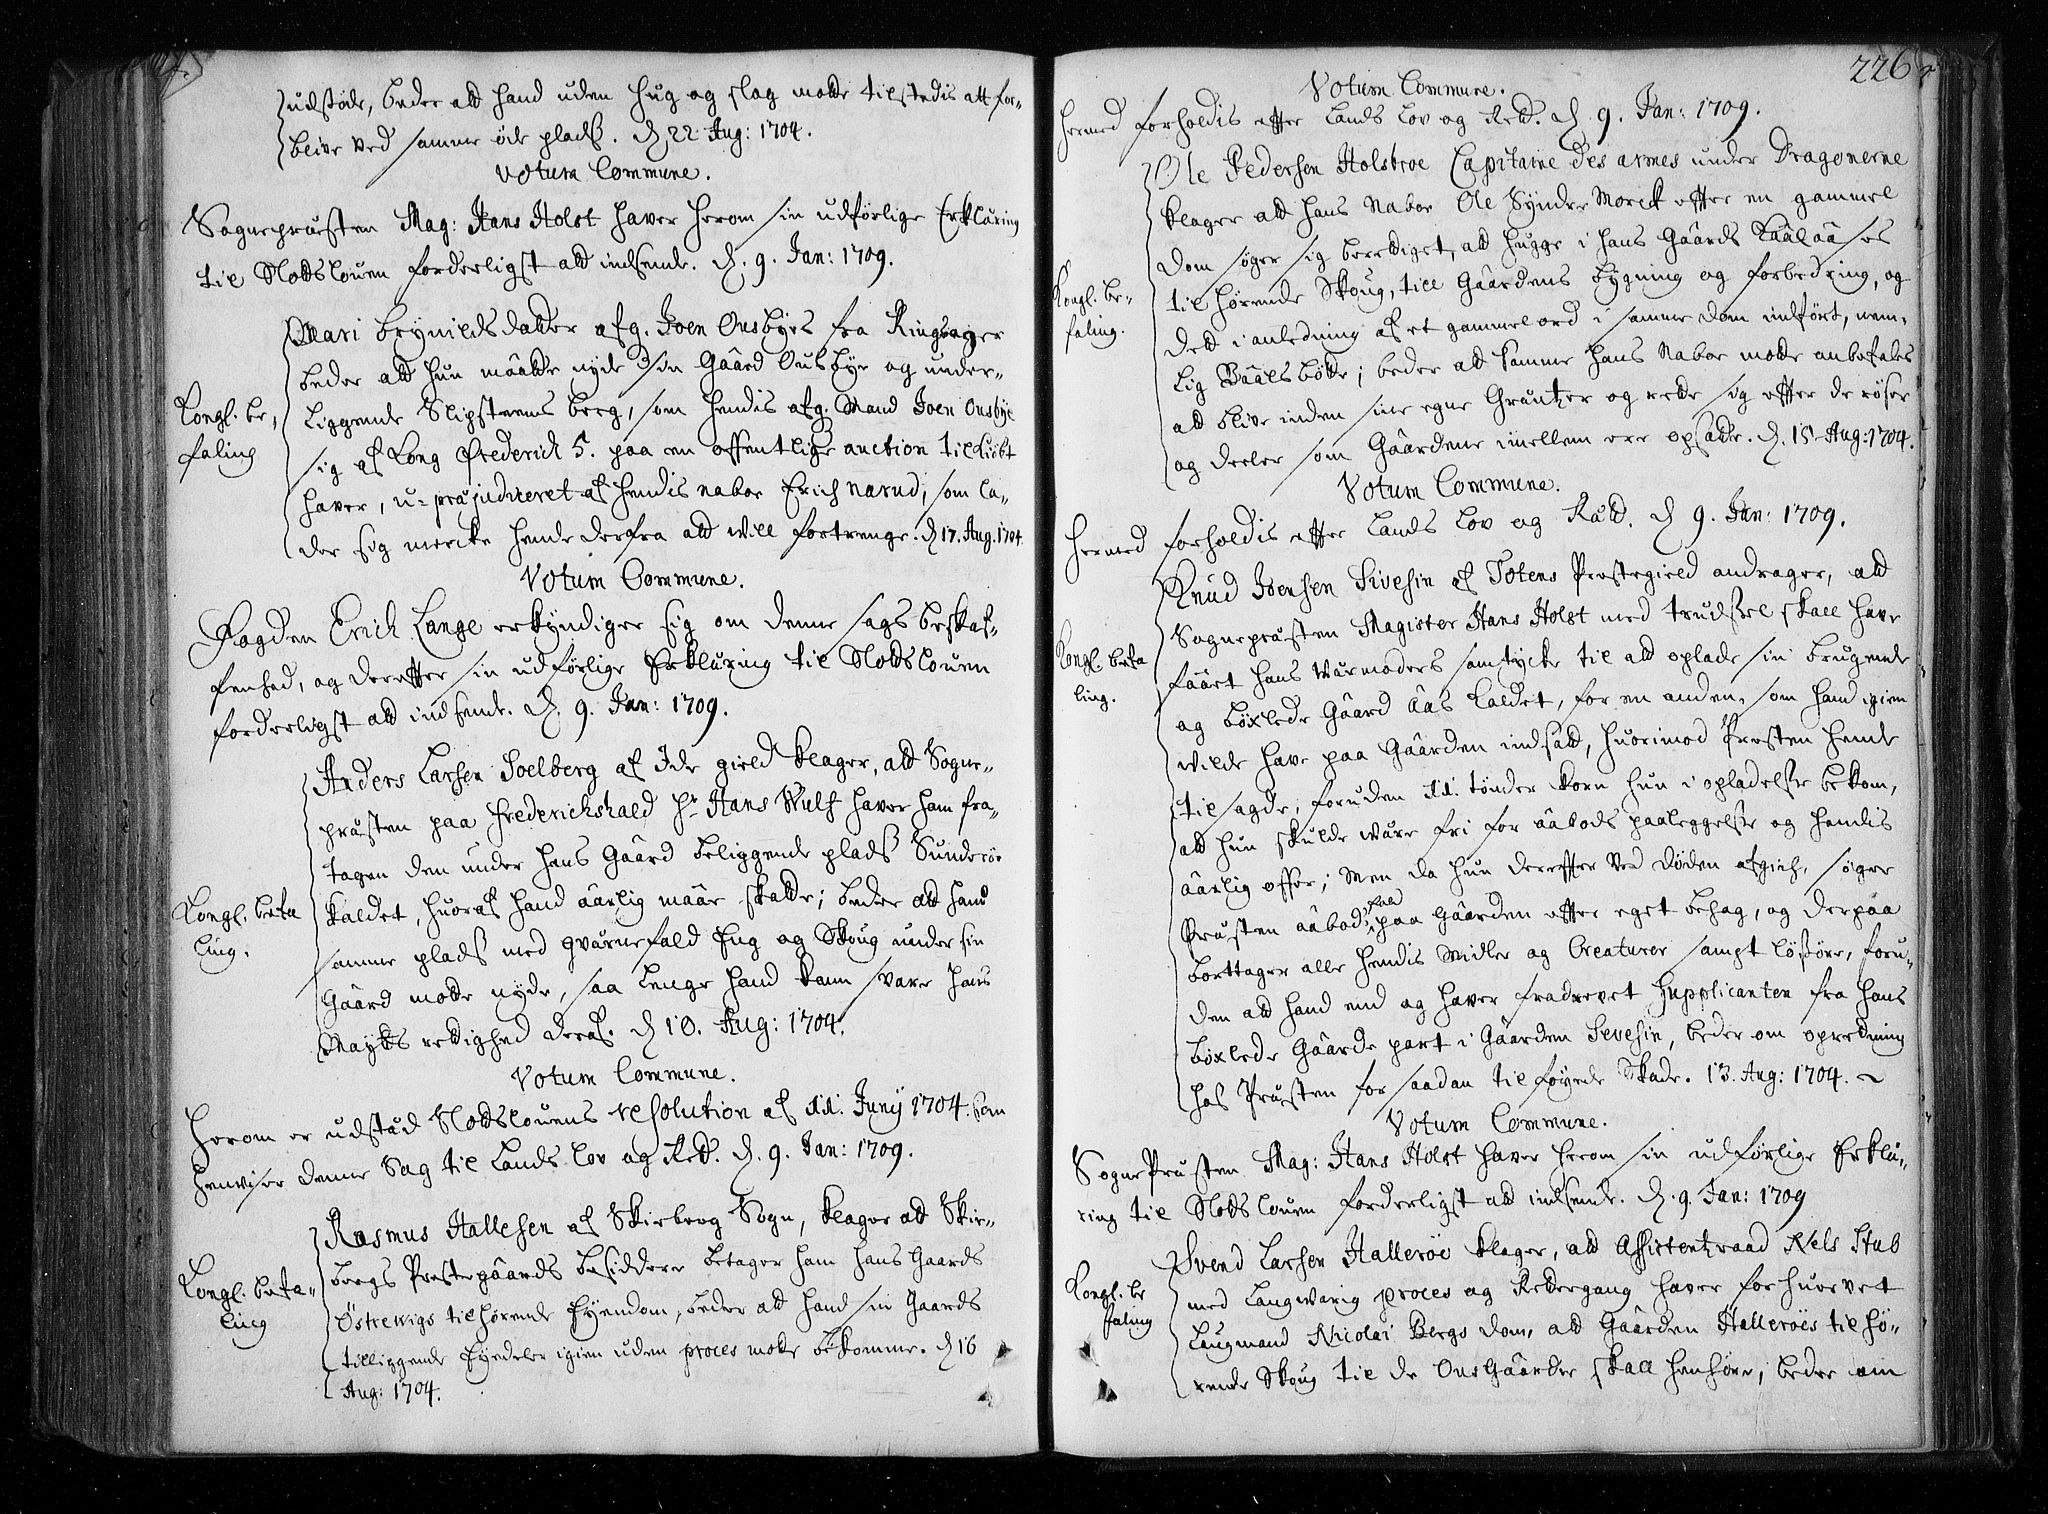 udstøde, beder att hand uden hug og slag motte tilstedis att for-
blive ved samme øde pladß. d. 22 Aug: 1704.
Votum Commune.
Sognepræsten Mag: Hans Holst haver herom sin udførlige Erklæring
til Slodslouen forderligst att indsende. d. 9. Jan: 1709.
Mari Brynildsdatter afg. Joen Ousbyes fra Ringsager
beder att hun maatte nyde sin Gaard Ousbye og under-
Kongl. be-
faling
liggende Slipsteens berg, som hendis afg. Mand Joen Ousbye
sig af Kong Frederich 5. paa en offentlige auction tilkiøbt
haver, u-præjudiceret af hendis naboe Erich narud, som la-
der sig mercke hende derfra att will fortrenge. d. 17. Aug. 1704
Votum Commune.
Fogden Erich Lange erkyndiger sig om denne sags beskaf-
fenhed, og derefter sin udførlige Erklæring til Slodslouen
forderligst att indsende. d. 9. Jan: 1709.
Anders Larsen Soelberg af Ide gield klager, att Sogne-
præsten paa Frederichshald Hr Hans Wulf haver ham fra-
tagen den under hans Gaard beliggende pladß Sunderøe
Kongl. befa
ling.
kaldet, huoraf hand aarlig maae skatte; beder att hand
samme pladß med qværnefald Eng og Skoug under sin
Gaard motte nyde, saa lenge hand kann svare hans
Mayts rettighed deraf. d. 10. Aug: 1704.
Votum Commune.
Herom er udstæd Slodslouens resolution af 11. Juny 1704. som
henviser denne Sag til Lands Lov og Rett. d. 9. Jan: 1709.
Rasmus Hallesen af Skieberg Sogn, klager att Skie-
Kongl. befa-
ling
bergs Præstegaards besiddere betager ham hans Gaards
Østrewigs tilhørende Eyendom, beder att hand sin Gaards
tilliggende Eyedeler igien uden proces motte bekomme. d 16
Aug: 1704.
226
Votum Commune.
Hermed forholdis efter Lands Lov og Rett. d. 9. Jan: 1709.
Ole Pedersen Holsbroe Capitaine des armes under Dragonerne
klager att hans Naboe Ole Syndre Morck efter en gammel
dom søger sig berettiget, att hugge i hans Gaards
Kongl. be-
faling.
tilhørende Skoug, till Gaardens bygning og forbedring, og
dett i anledning af et gammel ord i samme dom indført, nem-
lig Baalsbøtte; beder att samme hans Naboe motte anbefales
att blive inden sine egne Græntzer og rette sig efter de røser
og deeler som Gaardene imellem ere opsatte. d. 15 Aug: 1704.
Votum Commune.
Hermed forholdis efter Lands Lov og Rætt. d 9. Jan: 1709.
Knud Joensen Sivesin af Totens Prestegield andrager, att
Sognepræsten Magister Hans Holst med trudsel skall have
Kongl. befa
ling.
faaet hans Værmoders samtycke til att oplade sin brugende
og bøxlede Gaard Aas kaldet, for en anden, som hand igien
vilde have paa Gaarden indsatt, huorimod Præsten hende
tilsagde, foruden 11. tønder korn hun i opladelse bekom,
att hun skulde være fri for aabods paaleggelse og hendis
aarlig offer; Men da hun derefter ved døden afgich, søger
Præsten aabodsfald paa Gaarden efter eget behag, og derpaa
borttager alle hendis Midler og Creaturer sampt løßøre, foru-
den att hand end og haver fradrevet Supplicanten fra hans
bøxlede Gaarde part i Gaarden Sevesin, beder om opretning
hos Præsten for saadan tilføyede Skade. 13. Aug: 1704.
Votum Commune.
Sogne Præsten Mag: Hans Holst haver herom sin udførlige Erklæ-
ring til Slodslouen forderligst att indsende. d. 9. Jan: 1709
Svend Larsen Hallerøe klager, att Assistentzraad Niels Stub
Kongl. be
faling
med langvarig proces og Rettergang haver forhvervet
Laugmand Nicolai Bergs dom, att Gaarden Hallerøes tilhø-
rende Skoug til de Ous Gaarder skall henhøre, beder om